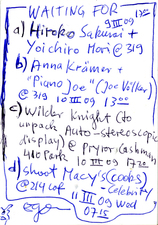 WAITING FOR
9 III 09 1300
a) Hiroko Sakurai +
Yoichiro Mori @ 319
b) Anna Krämer +
"Piano Joe" (Joe Villar)
@ 319 10 III 09 1300
c) Wilder Knight (to
unpack Auto-stereoscopic
display) @ Pryor Cashman
410 Park 10 III 09 1720
d) shoot Macy's (coobs)
@ 219 Lof - Celebrity
11 III 09 Wed
0715